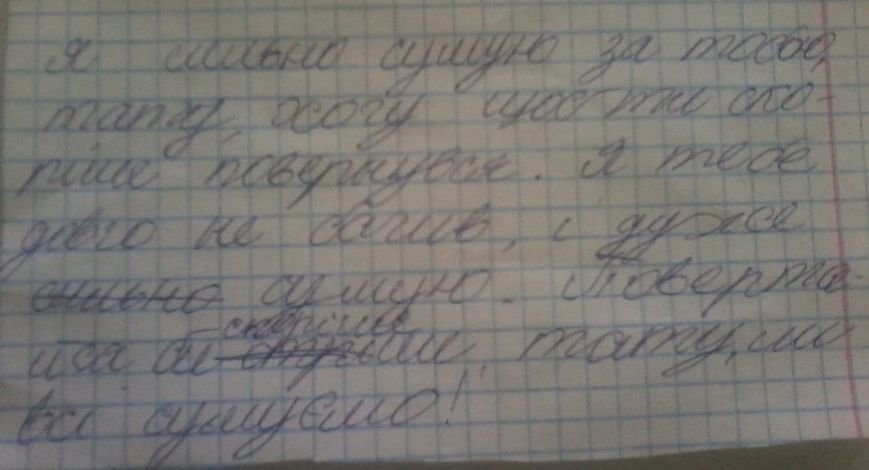 Я сильно сумую за тобою,
тату, хочу щоб ти ско-
ріше повернувся. Я тебе
довго не бачив, і дуже
сильно сумую. Поверта-
йся
скоріше
тату, ми
всі сумуємо!